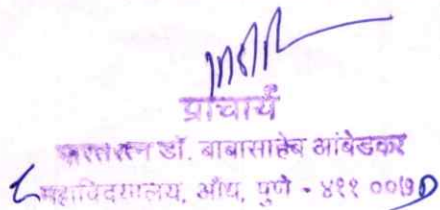 प्राचार्य
भारतरत्न डॉ. बाबासाहेब आंबेडकर
महाविद्यालय, औंध, पुणे - ४११ ००७